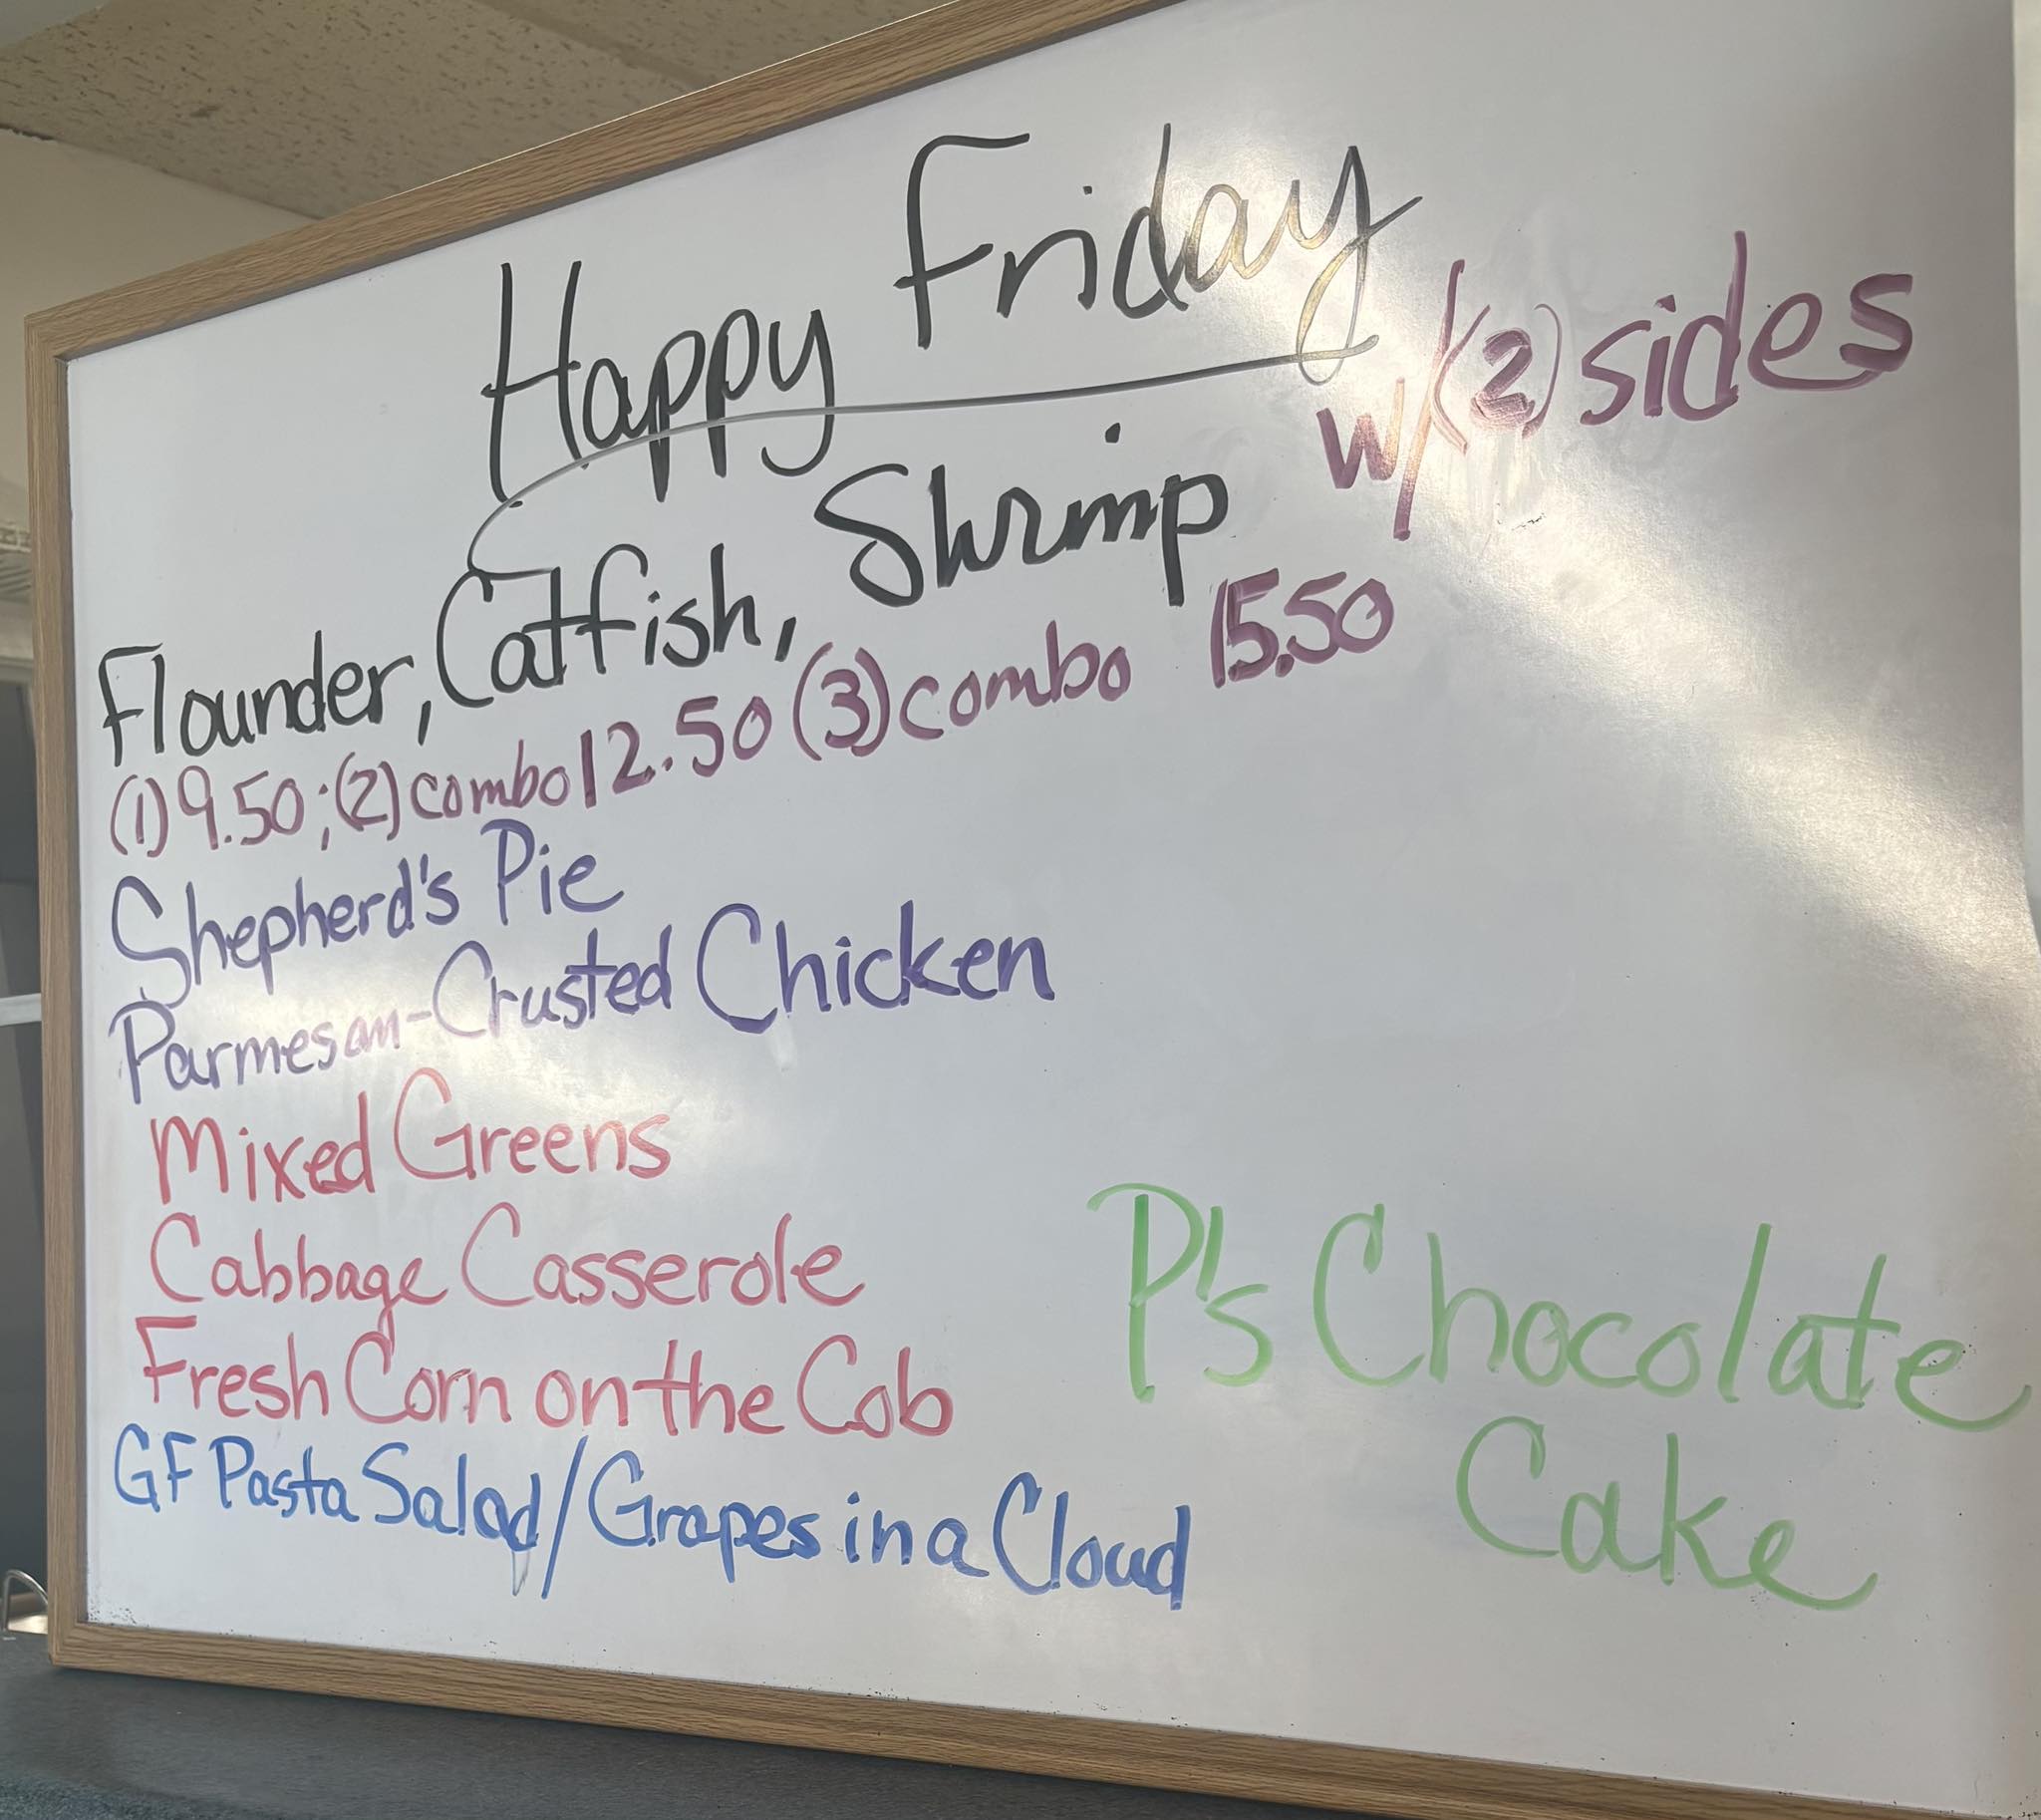 Happy Friday
Flounder, Catfish, Shrimp w/(2) sides
(1) 9.50; (2) combo 12.50 (3) combo 15.50
Shepherd's Pie
Parmesan-Crusted Chicken
Mixed Greens
Cabbage Casserole
Fresh Corn on the Cob
GF Pasta Salad/Grapes in a Cloud
P's Chocolate
Cake